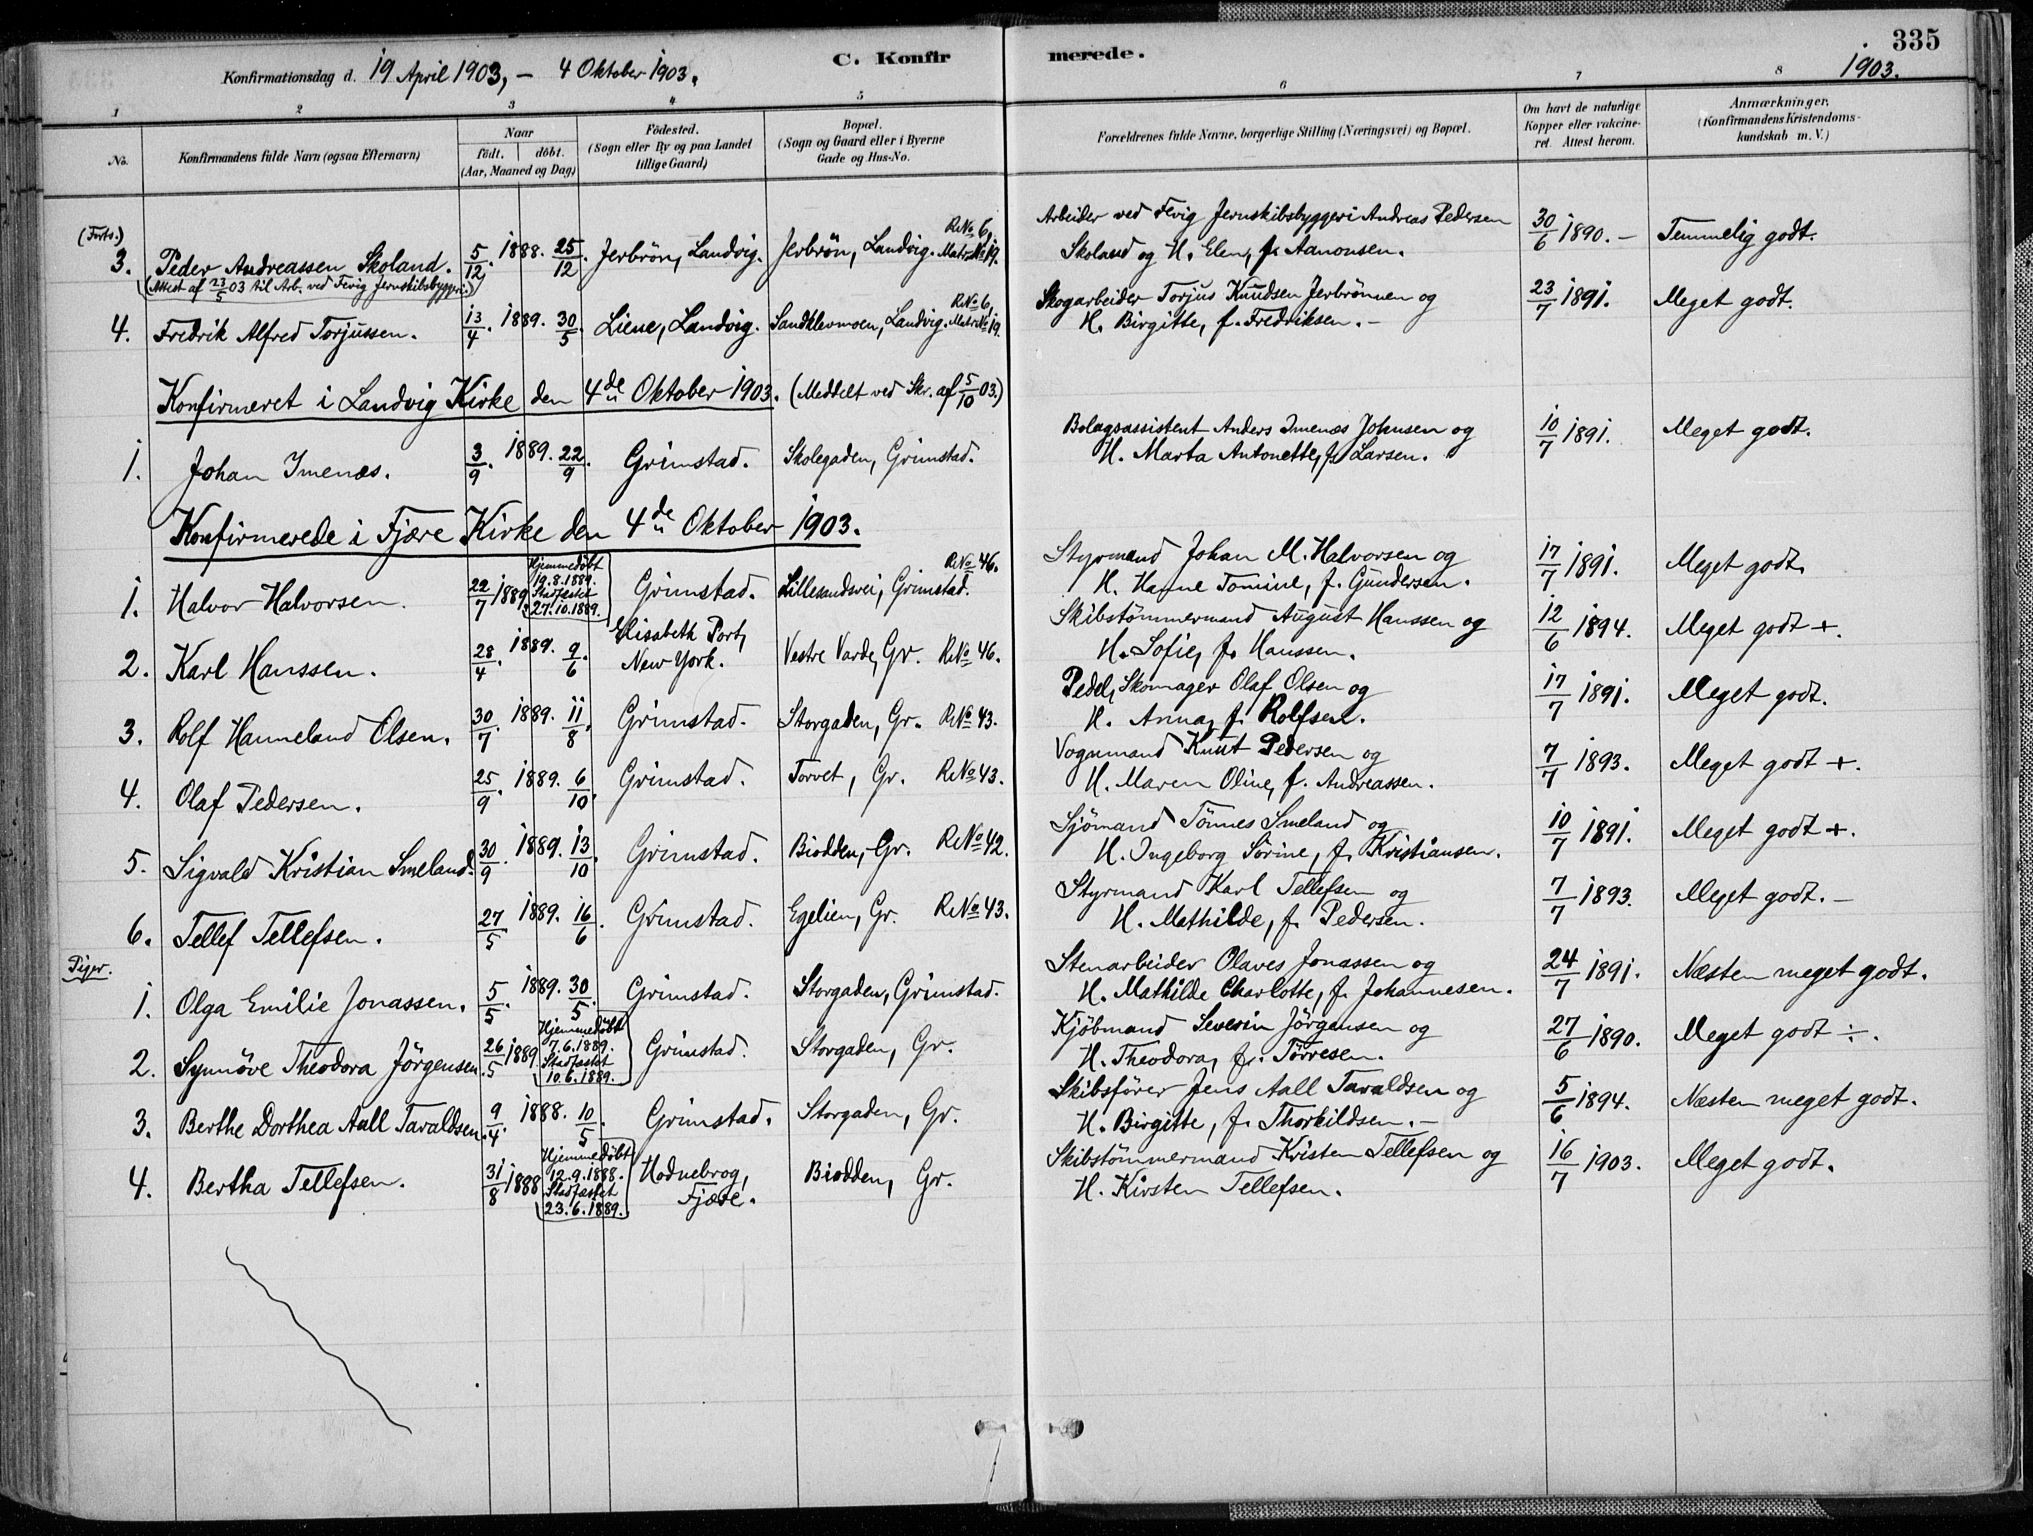 335
Konfirmationsdag d. 19 April 1903, - 4 Oktober 1903.
C. Konfirmerede.
1903.
1 2 3 4 5 6 7 8
No.
Konfirmandens fulde Navn (ogsaa Efternavn)
Naar
født. døbt.
(Aar, Maaned og Dag)
Fødested.
(Sogn eller By og paa Landet
tillige Gaard)
Bopæl.
(Sogn og Gaard eller i Byerne
Gade og Hus-No.
Forældrenes fulde Navne, borgerlige Stilling (Næringsvei) og Bopæl.
Om havt de naturlige
Kopper eller vakcine-
ret. Attest herom.
Anmærkninger,
(Konfirmandens Kristendoms-
kundskab m. V.)
(Forts.)
3. Peder Andreassen Skoland. 5/12. 1888. 25/12. Jerbrøn, Landvig. Jerbrøn, Landvig. RNo 6, Matr.No 19.
(Attest af 23/5 03 til Arb. ved Fevig Jernskibsbyggeri.)
Arbeider ved Fevig Jernskibsbyggeri Andreas Pedersen
Skoland og H. Elen, f. Aanonsen.
30/6 1890. - Temmelig godt.
4. Fredrik Alfred Torjussen. 13/4. 1889. 30/5. Liene, Landvig. Sandklevmoen, Landvig. RNo 6, Matr.No 19.
Skogarbeider Torjus Knudsen Jerbrønnen og
H. Birgitte, f. Fredriksen. -
23/7 1891. Meget godt.
Konfirmeret i Landvig Kirke den 4de Oktober 1903. (Meddelt ved Skr. af 5/10 03.)
1. Johan Imenæs. 3/9. 1889. 22/9. Grimstad. Skolegaden, Grimstad.
Bolagsassistent Anders Imenæs Johnsen og
H. Marta Antonette, f. Larsen.
10/7 1891. Meget godt.
Konfirmerede i Fjære Kirke den 4de Oktober 1903.
1. Halvor Halvorsen. 22/7 1889 Hjemmedøbt 19.8.1889. Stadfæstet 27.10.1889. Grimstad. Lillesandsvei, Grimstad. RNo 46.
Styrmand Johan M. Halvorsen og
H. Hanne Tomine, f. Gundersen.
17/7 1891. Meget godt.
2. Karl Hanssen. 28/4. 1889. 9/6. Elisabeth Port, New York. Vestre Varde, Gr. RNo 46.
Skibstømmermand August Hanssen og
H. Sofie, f. Hanssen.
12/6 1894. Meget godt +.
3. Rolf Hanneland Olsen. 30/7. 1889. 11/8. Grimstad. Storgaden, Gr. RNo 43.
Pedel, Skomager Olaf Olsen og
H. Anna, f. Rolfsen.
17/7 1891. Meget godt.
4. Olaf Pedersen. 25/9. 1889. 6/10. Grimstad. Torvet, Gr. RNo 43.
Vognmand Knut Pedersen og
H. Maren Oline, f. Andreassen.
7/7 1893. Meget godt +.
5. Sigvald Kristian Smeland. 30/9. 1889. 13/10. Grimstad. Biodden, Gr. RNo 42.
Sjømand Tønnes Smeland og
H. Ingeborg Sørine, f. Kristiansen.
10/7 1891. Meget godt +.
6. Tellef Tellefsen. 27/5. 1889. 16/6. Grimstad. Egelien, Gr. RNo 43.
Styrmand Karl Tellefsen og
H. Mathilde, f. Pedersen.
7/7 1893. Meget godt. -
Piger.
1. Olga Emilie Jonassen. 5/5. 1889. 30/5. Grimstad. Storgaden, Grimstad.
Stenarbeider Olaves Jonassen og
H. Mathilde Charlotte, f. Johannesen.
24/7 1891. Næsten meget godt.
2. Synnøve Theodora Jörgensen. 26/5 1889. Hjemmedøbt 7.6.1889. Stadfæstet 10.6.1889. Grimstad. Storgaden, Gr.
Kjøbmand Severin Jörgensen og
H. Theodora, f. Tørresen.
27/6 1890. Meget godt ÷.
3. Berthe Dorthea Aall Tavaldsen. 9/4. 1888. 10/5. Grimstad. Storgaden, Gr.
Skibsfører Jens Aall Tavaldsen og
H. Birgitte, f. Thorkildsen. -
5/6 1894. Næsten meget godt.
4. Bertha Tellefsen. 31/8 1888 Hjemmedøbt 12.9.1888. Stadfæstet 23.6.1889. Hodnebrog, Fjære. Biodden, Gr.
Skibstømmermand Kristen Tellefsen og
H. Kirsten Tellefsen.
16/7 1903. Meget godt.